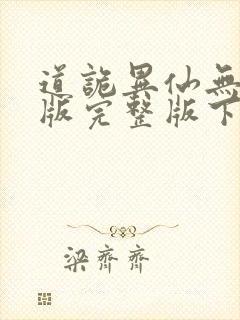 道詭異仙無
版完整版下
梁齊齊